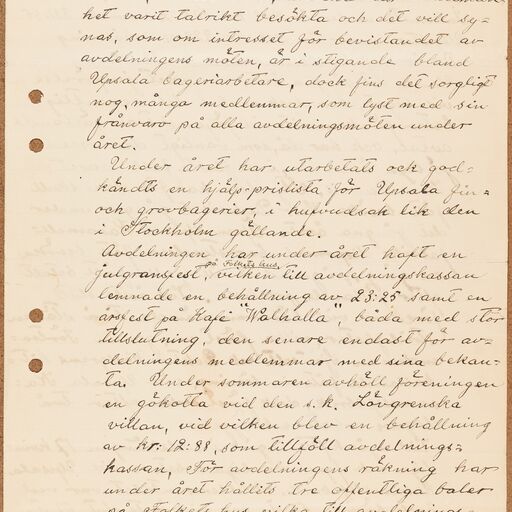 het varit talrikt besökta och det vill sy=
nas, som om intresset för bevistandet av
avdelningens möten, är i stigande bland
Upsala bageriarbetare, dock fins det sorgligt
nog, många medlemmar, som lyst med sin
frånvaro på alla avdelningsmöten under
året.
Under året har utarbetats och god=
kändts en hjälp-prislista för Upsala fin=
och grovbagerier, i hufvudsak lik den
i Stockholm gällande.
Avdelningen har under året haft en
på Folkets hus
julgransfest, vilken till avdelningskassan
lemnade en behållning av 23:25 samt en
årsfest på Kafé "Walhalla", båda med stor
tillslutning, den senare endast för av=
delningens medlemmar med sina bekan=
ta. Under sommaren avhöll föreningen
en gökotta vid den s.k. Lövgrenska
villan, vid vilken blev en behållning
av kr: 12:88, som tillföll avdelnings=
kassan. För avdelningens räkning har
under året hållits tre offentliga baler
på Folkets hus vilka till avdelnings=